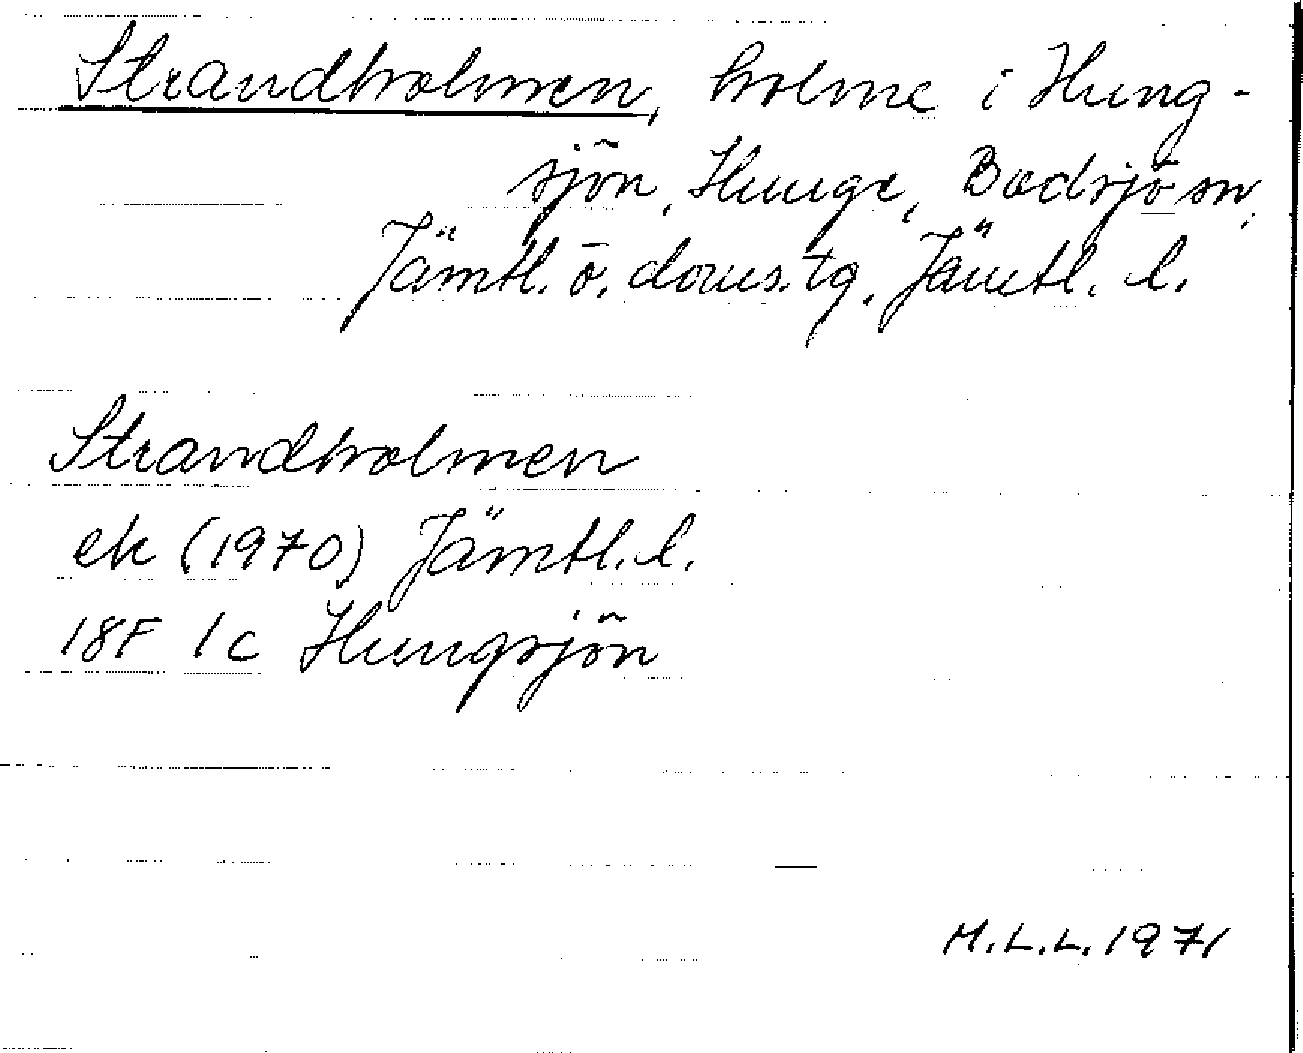 Strandholmen, holme i Hung-
sjön, Hunge, Bodsjö sn,
Jämtl. ö. doms.tg, Jämtl. l.
Strandholmen
ek (1970) Jämtl. l.
18F 1c Hungsjön
M.L.L. 1971